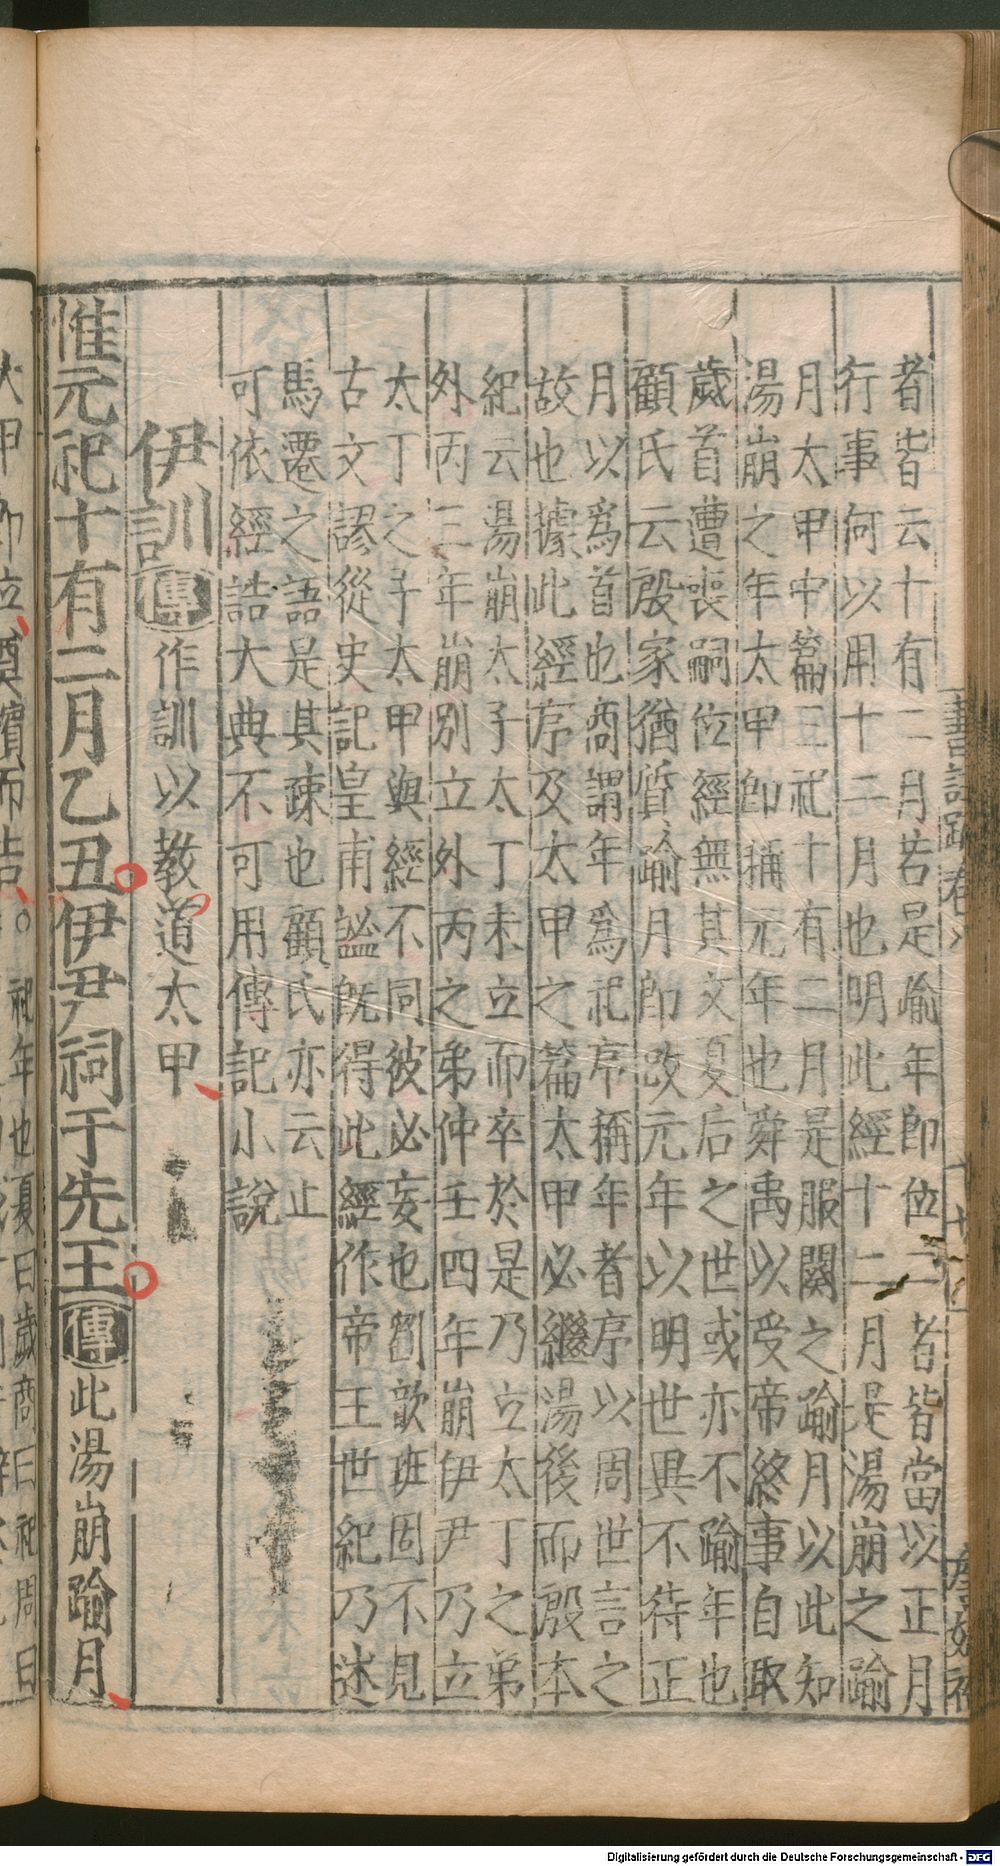 者皆云十有二月若是踰年即位二者皆當以正月
行事何以用十二月也明此經十二月是湯崩之踰
月太甲中篇三祀十有二月是服闋之踰月以此知
湯崩之年太甲即稱元年也舜禹以受帝終事自取
歲首遭喪嗣位經無其文夏后之世或亦不踰年也
顧氏云殷家猶質踰月即改元年以明世異不待正
月以爲首也商謂年爲祀序稱年者序以周世言之
故也據此經序及太甲之篇太甲必繼湯後而殷本
紀云湯崩太子太丁未立而卒於是乃立太丁之弟
外丙三年崩別立外丙之弟仲壬四年崩伊尹乃立
太丁之子太甲與經不同彼必妄也劉歆班固不見
古文謬從史記皇甫謐既得此經作帝王世紀乃述
馬遷之語是其疎也顧氏亦云止
可依經誥大典不可用傳記小說
伊訓傳作訓以教道太甲
惟元祀十有二月乙丑伊尹祠于先王傳此湯崩踰月
太甲即位奠殯而告
祀年也夏曰歲商曰祀周曰
Digitalisierung gefördert durch die Deutsche Forschungsgemeinschaft - DFG